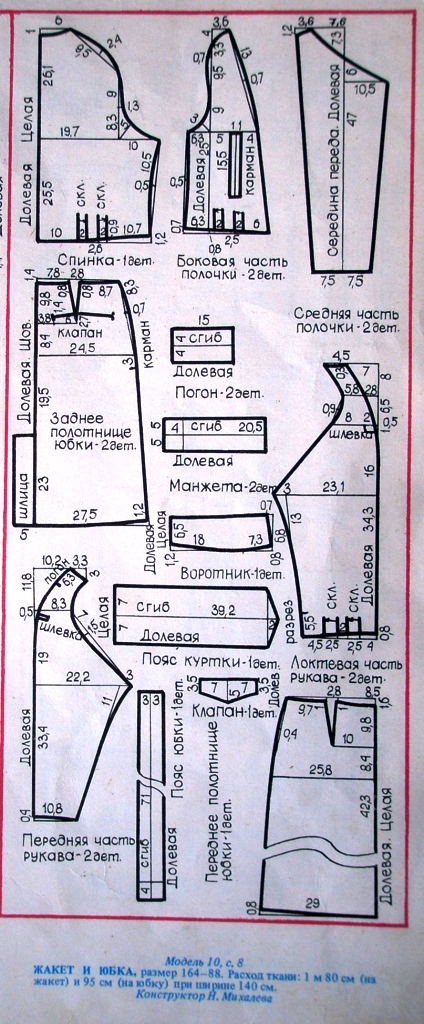 1 6 9,5 2,4
26,1
Целая
9 1,3
8,3 5
19,7
10
10,5
Долевая
25,5
скл. скл.
0,5
10 2 2 0,9 10,7
2,8 1,2
Спинка-1дет.
3,6
4 3,3 13
0,7 9,5 0,7
9
3 11
6,3 5 4
25
Долевая
15,5
карман
0,5
0,7 6,3 2 2 6
0,8 2,5
Боковая часть
полочки-2дет.
3,6 7,6
1,2 7,3
6
10,5
Середина переда. Долевая
47
7,5 7,5
Средняя часть
полочки-2дет.
1,4 7,8 2,8
9,8 0,8 0,8 8,7 8,3
1,4 0,7
3,8 2,7
клапан
Долевая Шов.
8,4
24,5
3
карман
19,5
Заднее
полотнище
юбки-2дет.
шлица
23
27,5 1,2
5
15
4 сгиб
4
Долевая
Погон-2дет.
5 5 4 сгиб 20,5
Долевая
Манжета-2дет.
Долевая
Целая
0,7
6,5
1,2 18 7,3 0,8
Воротник-1дет.
4,5
0,3 7 8
5,8 2,8
0,9 8 2 6,5
шлевка
1,0,5
16
3 23,1
13
6,8
34,3
Долевая
разрез
скл. скл.
5,5
4,5 2,5 2,5 4 0,8
Локтевая часть
рукава-2дет.
10,2 3,3
погон 3
6,3
11,8
0,5 8,3 7
шлевка
1,5
19
22,2 3
11
Долевая
33,4
0,4 10,8
Передняя часть
рукава-2дет.
Целая
7 сгиб 39,2
7 Долевая 2
Пояс куртки-1дет.
3,5 7 5 7 3,5
Долев
Клапан-1дет.
3 3
71
сгиб
4
Долевая
Пояс юбки-1дет.
Переднее полотнище
юбки-1дет.
2,8 8,5
9,7 1 1,6
0,4 10 9,8
25,8 8,4
42,3
Долевая. Целая
0,8 29
Модель 10, с. 8
ЖАКЕТ И ЮБКА, размер 164—88. Расход ткани: 1 м 80 см (на
жакет) и 95 см (на юбку) при ширине 140 см.
Конструктор Н. Михалева